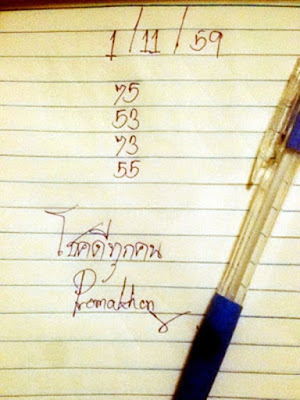 1 / 11 / 59
75
53
73
55
โชคดีทุกคน